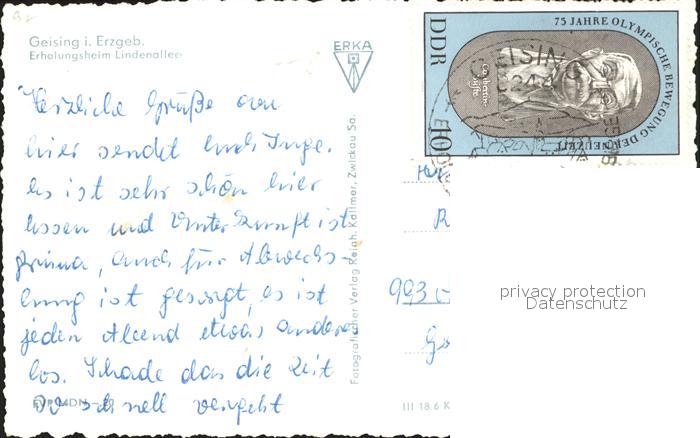 Geising i. Erzgeb.
Erholungsheim Lindenallee
ERKA
Herzliche Grüße von
hier sendet Euch Inge.
Es ist sehr schön hier
Essen und Unterkunft ist
prima, auch für Abwechs-
lung ist gesorgt, es ist
jeden Abend etwas anderes
los. Schade das die Zeit
so schnell vergeht
Fotografischer Verlag Reinh. Kallmer, Zwickau Sa.
DDR
10
75 JAHRE OLYMPISCHE BEWEGUNG DER NEUZEIT
GEISING
993
III 18 6 K
privacy protection
Datenschutz